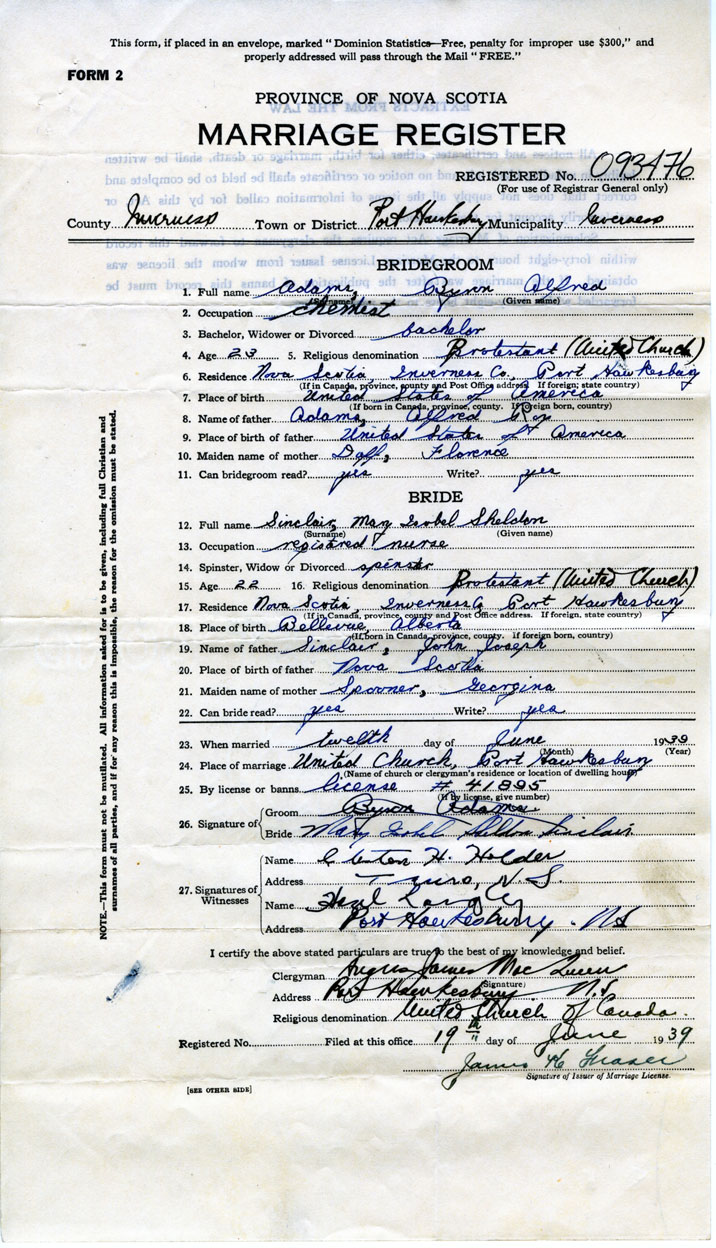 This form, if placed in an envelope, marked "Dominion Statistics—Free, penalty for improper use $300," and
properly addressed will pass through the Mail "FREE."
FORM 2
PROVINCE OF NOVA SCOTIA
MARRIAGE REGISTER
REGISTERED No. 093476
(For use of Registrar General only)
County Inverness Town or District Port Hawkesbury Municipality Inverness
BRIDEGROOM
1. Full name Adams, Byron Alfred
(Surname) (Given name)
2. Occupation chemist
3. Bachelor, Widower or Divorced bachelor
4. Age 23 5. Religious denomination Protestant (United Church)
6. Residence Nova Scotia, Inverness Co, Port Hawkesbury
(If in Canada, province, county and Post Office address. If foreign; state country)
7. Place of birth United States of America
(If born in Canada, province, county. If foreign born, country)
8. Name of father Adams, Alfred Roy
9. Place of birth of father United States of America
10. Maiden name of mother Florence
11. Can bridegroom read? yes Write? yes
BRIDE
12. Full name Sinclair, Mary Isobel Sheldon
(Surname) (Given name)
13. Occupation registered nurse
14. Spinster, Widow or Divorced spinster
15. Age 22 16. Religious denomination Protestant (United Church)
17. Residence Nova Scotia, Inverness Co, Port Hawkesbury
(If in Canada, province, county and Post Office address. If foreign, state country)
18. Place of birth Bellevue, Alberta
(If born in Canada, province, county. If foreign born, country)
19. Name of father Sinclair, John Joseph
20. Place of birth of father Nova Scotia
21. Maiden name of mother Spowner, Georgina
22. Can bride read? yes Write? yes
23. When married twelth day of June 1939
(Month) (Year)
24. Place of marriage United Church, Port Hawkesbury
(Name of church or clergyman's residence or location of dwelling house)
25. By license or banns license # 41895
(If by license, give number)
26. Signature of Groom Byron Adams
Bride Mary Isobel Sheldon Sinclair
27. Signatures of Witnesses
Name Clinton H. Holder
Address Truro, N.S.
Name Hazel Langley
Address Port Hawkesbury. NS
I certify the above stated particulars are true to the best of my knowledge and belief.
Clergyman Angus James MacQueen
(Signature)
Address Port Hawkesbury N.S.
Religious denomination United Church of Canada.
Registered No. Filed at this office 19th day of June 1939
James H Fraser
Signature of Issuer of Marriage License
[SEE OTHER SIDE]
NOTE.—This form must not be mutilated. All information asked for is to be given, including full Christian and
surnames of all parties, and if for any reason this is impossible, the reason for the omission must be stated.